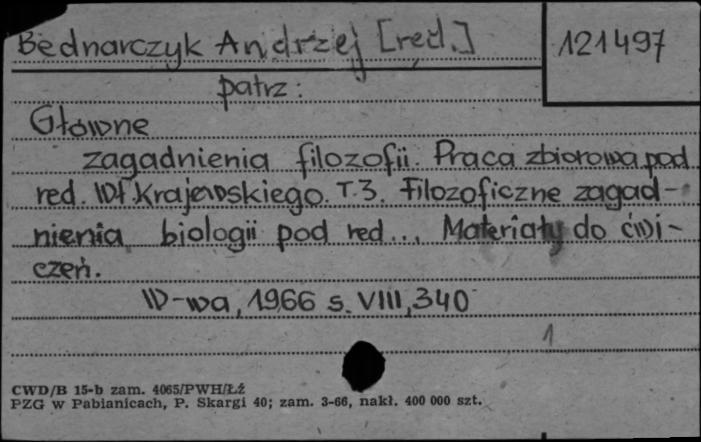 Bednarczyk Andrzej [red.]
121497
patrz:
Główne
zagadnienia filozofii. Praca zbiorowa pod
red. Wł. Krajewskiego. T.3. Filozoficzne zagad-
nienia biologii pod red... Materiały do ćwi-
czeń.
W-wa, 1966 s. VIII, 340
1
CWD/B 15-b zam. 4065/PWH/Łź
PZG w Pabianicach, P. Skargi 40; zam. 3-66, nakł. 400 000 szt.